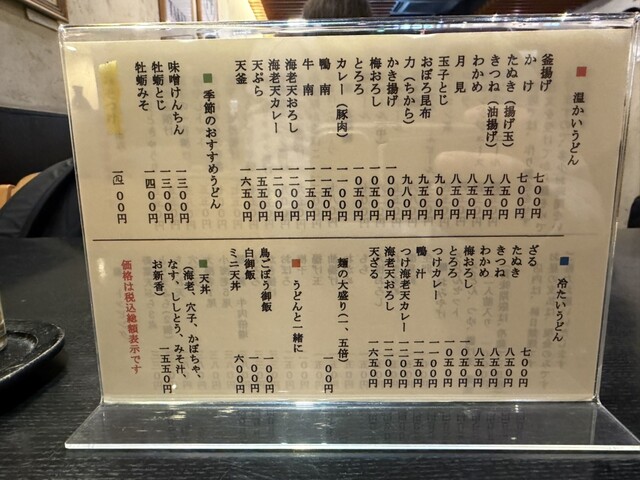 ■ 温かいうどん
釜揚げ 七〇〇円
かけ 七〇〇円
たぬき（揚げ玉） 八五〇円
きつね（油揚げ） 八五〇円
わかめ 八五〇円
月見 八五〇円
玉子とじ 九〇〇円
おぼろ昆布 九五〇円
力（ちから） 九八〇円
かき揚げ 一〇〇〇円
梅おろし 一〇五〇円
とろろ 一〇五〇円
カレー（豚肉） 一一〇〇円
鴨南 一一五〇円
牛南 一一五〇円
海老天おろし 一二〇〇円
海老天カレー 一二〇〇円
天ぷら 一五五〇円
天釜 一六五〇円
■ 季節のおすすめうどん
味噌けんちん 一三〇〇円
牡蛎とじ 一三〇〇円
牡蛎みそ 一四〇〇円
一四〇〇円
■ 冷たいうどん
ざる 七〇〇円
たぬき 八五〇円
きつね 八五〇円
わかめ 八五〇円
梅おろし 一〇五〇円
とろろ 一〇五〇円
つけカレー 一一〇〇円
鴨汁 一一五〇円
つけ海老天カレー 一二〇〇円
海老天おろし 一二〇〇円
天ざる 一六五〇円
麺の大盛り（一、五倍） 一〇〇円
■ うどんと一緒に
鳥ごぼう御飯 一〇〇円
白御飯 一〇〇円
ミニ天丼 六〇〇円
■ 天丼
（海老、穴子、かぼちゃ、
なす、ししとう、みそ汁、
お新香） 一五五〇円
価格は税込総額表示です